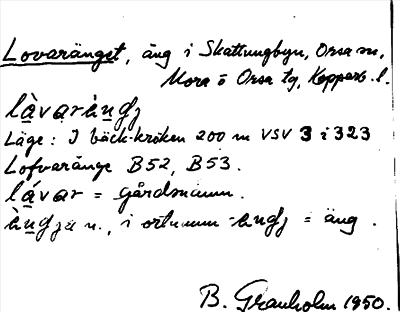 Lovaränget, äng i Skattungbyn, Orsa sn,
Mora o Orsa tg, Kopparb. l.
làvarèngj
Läge: I bäck-kröken 200 m VSV 3 i 323
Lofvaränge B52, B53.
lávar = gårdsnamn.
èngja n., i ortnamn -engj = äng.
B. Granholm 1950.